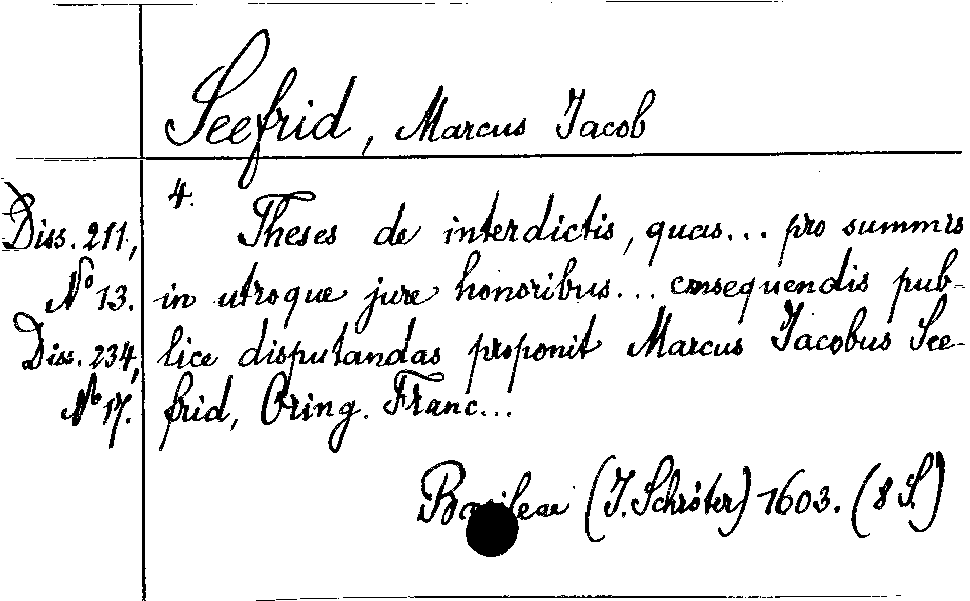 Seefrid, Marcus Jacob
4.
Diss. 211, Theses de interdictis, quas... pro summis
No 13. in utroque jure honoribus... consequendis pub-
Diss. 234, lice disputandas proponit Marcus Jacobus See-
No 17. frid, Oring. Franc...
Basileae (J. Schröter) 1603. (8 S.)